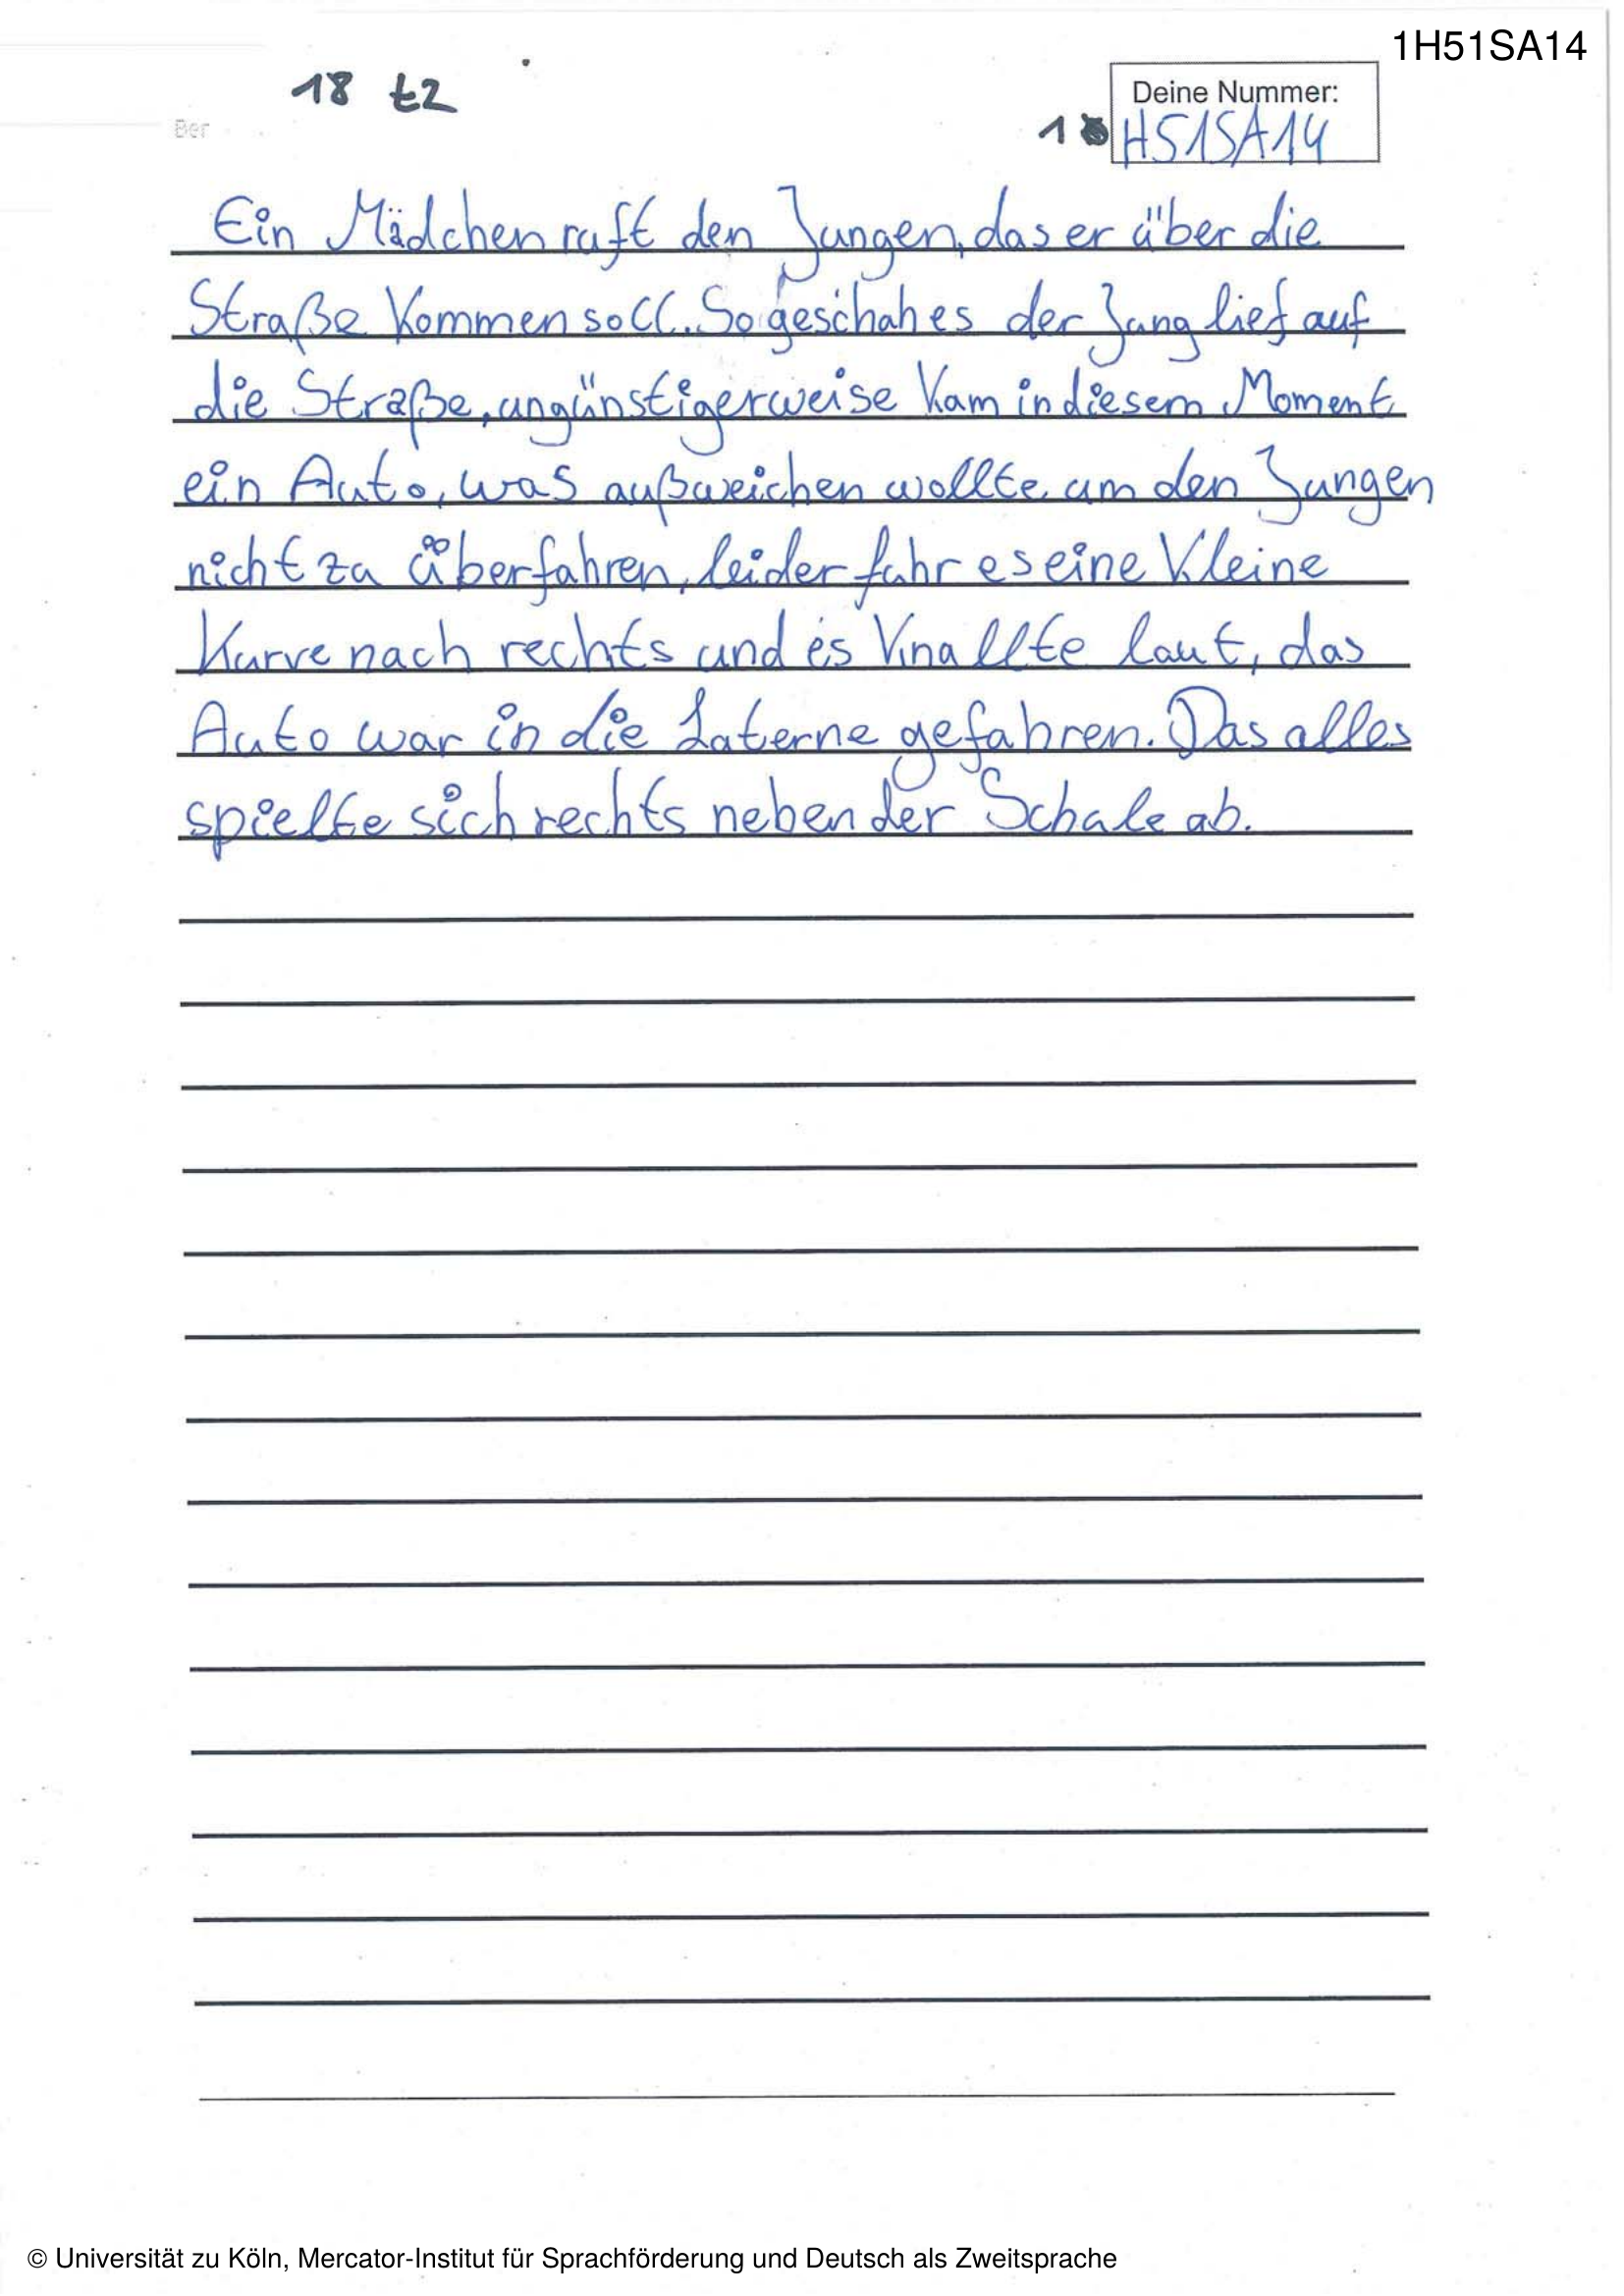 1H51SA14
18 t2
Deine Nummer:
1 H51SA14
Ber
Ein Mädchen ruft den Jungen, das er über die
Straße kommen soll. So geschah es der Jung lief auf
die Straße, ungünstigerweise kam in diesem Moment
ein Auto, was außweichen wollte um den Jungen
nicht zu überfahren, leider fuhr es eine kleine
Kurve nach rechts und es knallte laut, das
Auto war in die Laterne gefahren. Das alles
spielte sich rechts neben der Schule ab.
© Universität zu Köln, Mercator-Institut für Sprachförderung und Deutsch als Zweitsprache